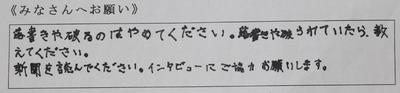 《みなさんへお願い》
落書きや破るのはやめてください。落書きや破られていたら、教
えてください。
新聞を読んでください。インタビューにご協力お願いします。